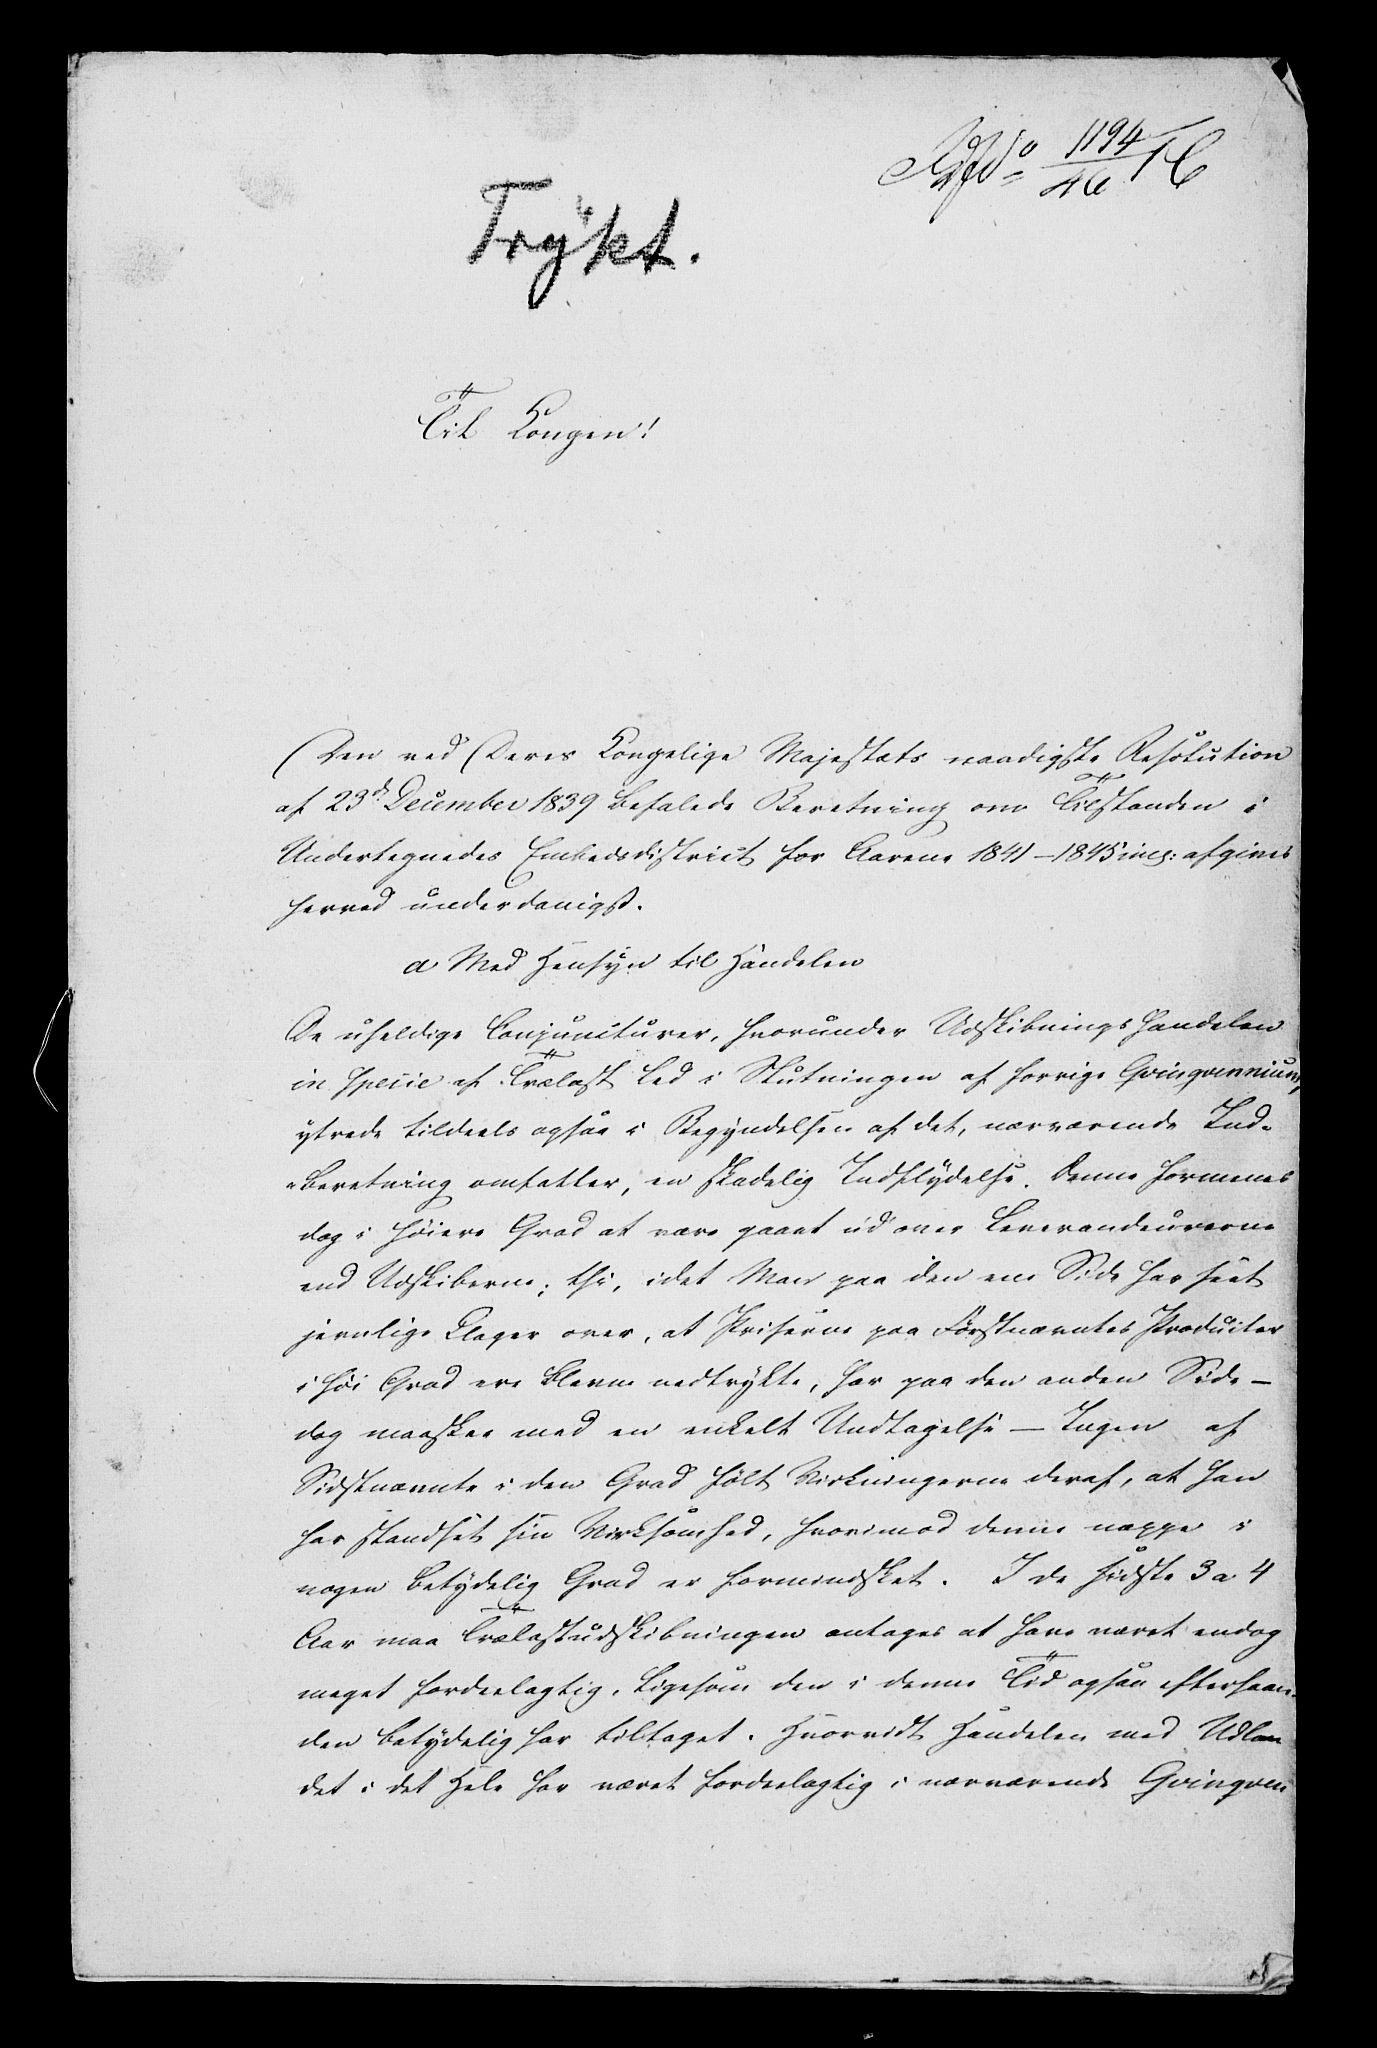 1194
46
Trykt.
Til Kongen!
Den ved Deres Kongelige Majestæts naadigste Resolution
af 23d December 1839 befalede Beretning om Tilstanden i
Undertegnedes Embedsdistrict for Aarene 1841-1845 incl: afgives
herved underdanigst.
a Med Hensyn til Handelen
De uheldige Conjuncturer, hvorunder Udskibningshandelen
in specie af Trælast led i Slutningen af forrige Qvinqvennium,
ytrede tildeels ogsaa i Begyndelsen af det, nærværende Ind-
-beretning omfatter, en skadelig Indflydelse. Denne formenes
dog i høiere Grad at være gaaet ud over Leverandeurerne
end Udskiberne; thi, idet Man paa den ene Side har hørt
jevnlige Klager over, at Priserne paa Førstnævntes Producter
i høi Grad ere blevne nedtrykte, har paa den anden Side -
dog maaskee med en enkelt Undtagelse - Ingen af
Sidstnævnte i den Grad følt Virkningerne deraf, at han
har standset sin Virksomhed, hvorimod denne neppe i
nogen betydelig Grad er formindsket. I de sidste 3 a 4
Aar maa Trælastudskibningen antages at have været endog
meget fordeelagtig, ligesom den i denne Tid ogsaa efterhaan-
den betydelig har tiltaget. Hvorvidt Handelen med Udlan
det i det Hele har været fordeelagtig i nærværende Qvinqven